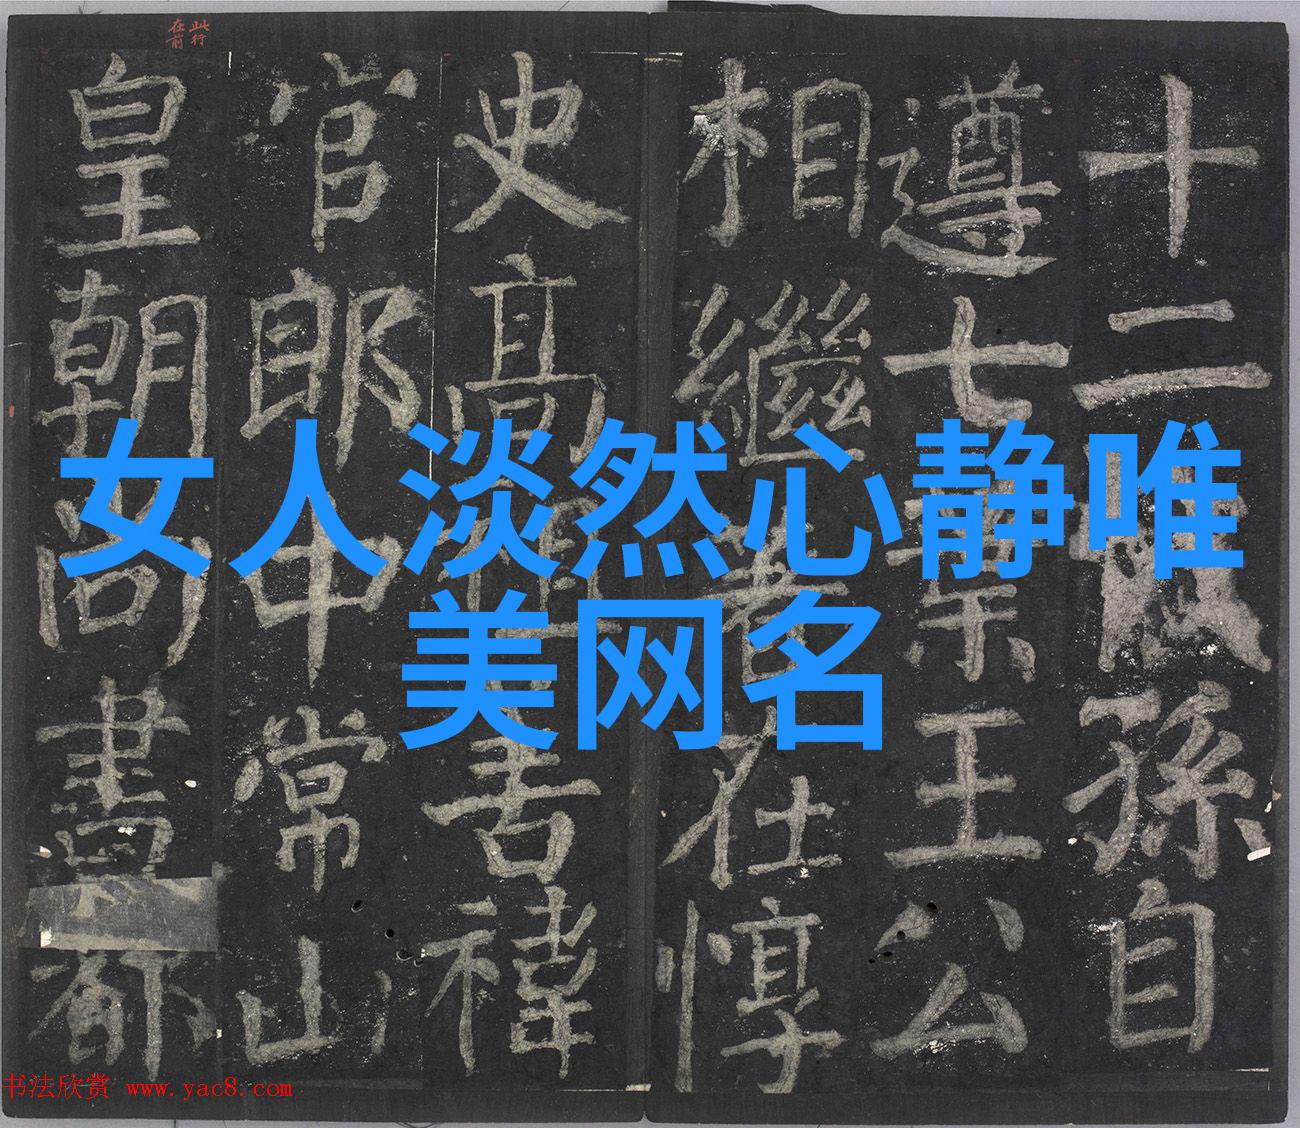 此行
在前
女人淡然心静唯
美网名
十二孫自
遵七葉王公
相繼著在惇
史高祖禕
官郎中常山
皇朝尚書都
书法欣赏 www.yac8.com